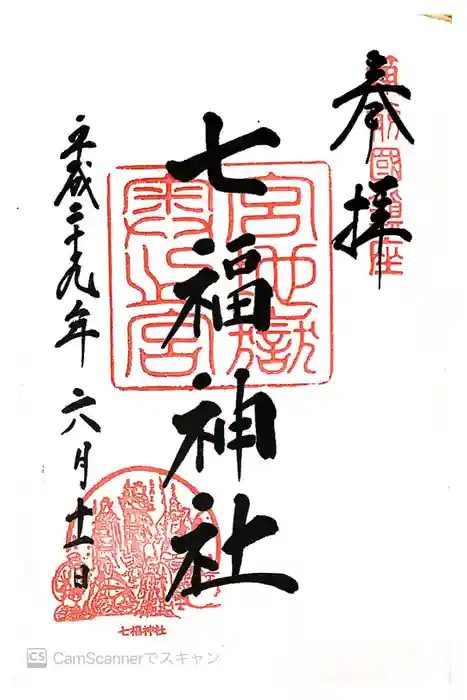 奉拝
筑前國鎮座
七福神社
宮地嶽
平成二十九年六月十一日
七福神社
CS CamScannerでスキャン